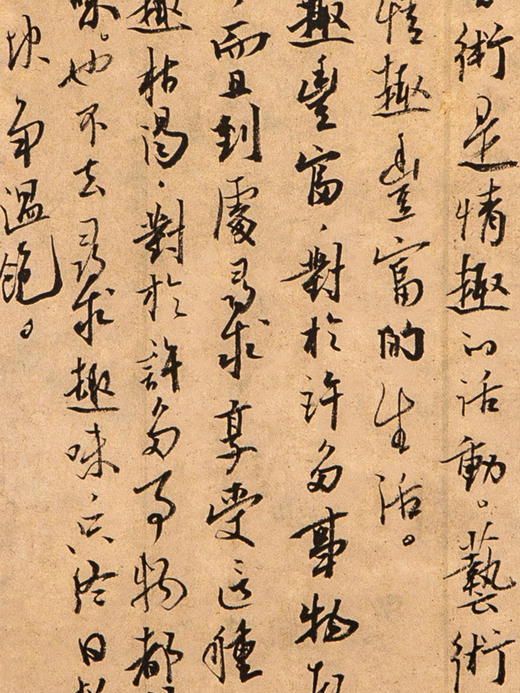 術是情趣的活動。藝術
情趣豐富的生活。
趣豐富，對於許多事物都
，而且到處尋求享受這種
趣枯渴，對於許多事物都
味。也不去尋求趣味只終日
塊爭溫飽。